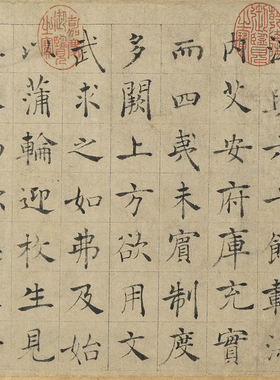 餘載海
内艾安府庫充實
而四夷未賓制度
多闕上方欲用文
武求之如弗及始
以蒲輪迎枚生見